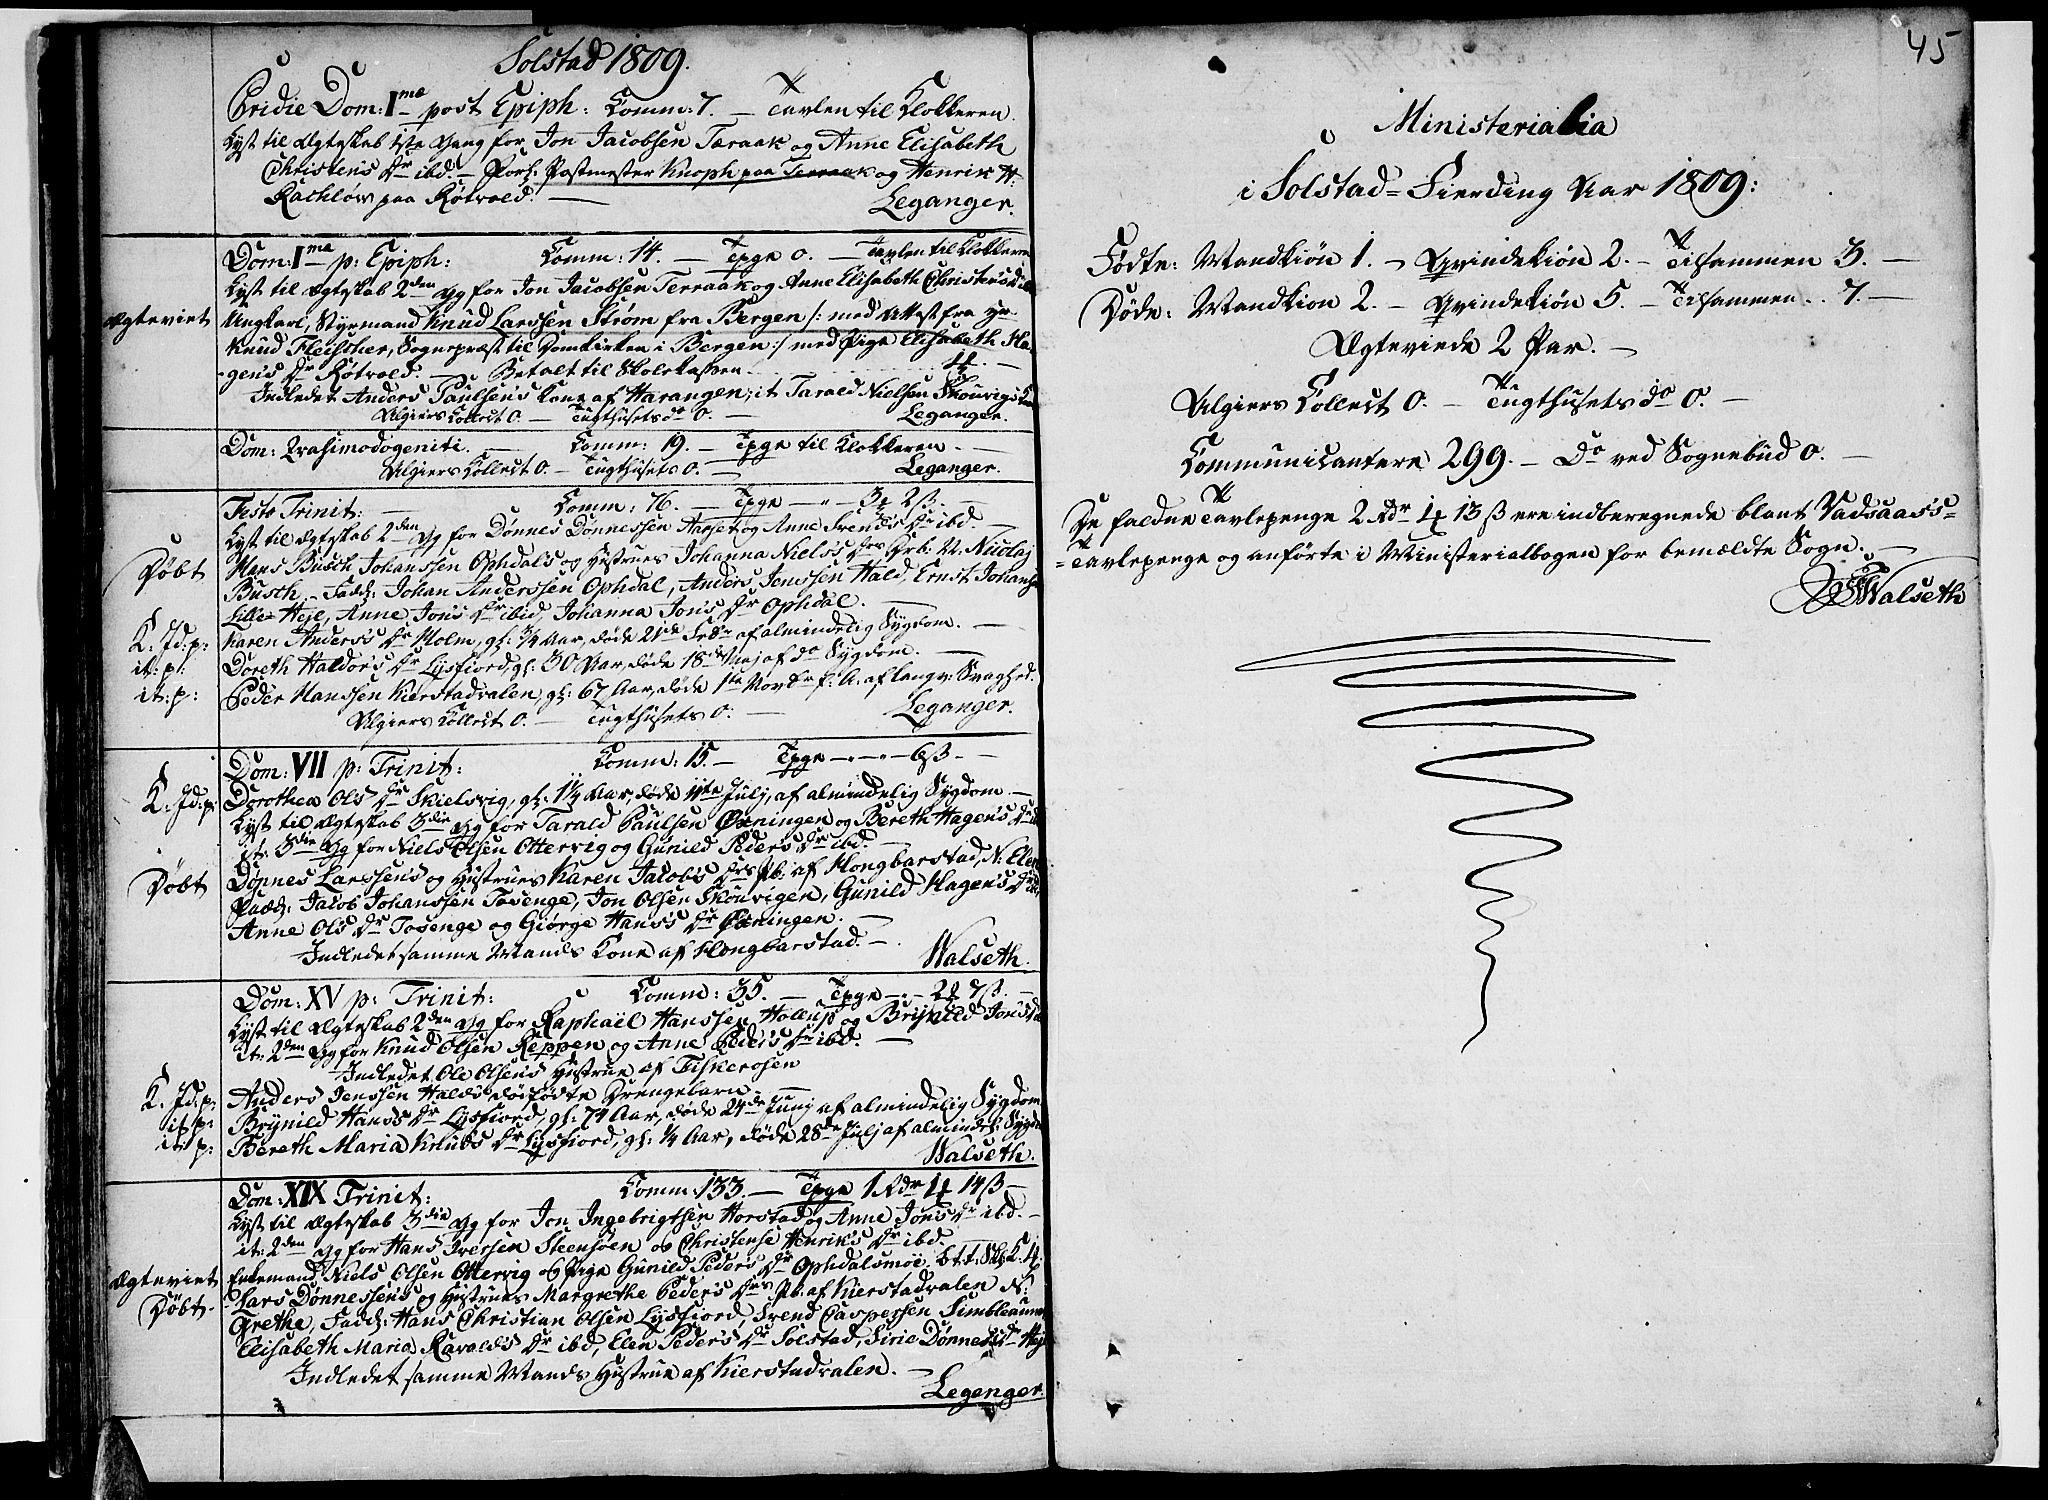 Solstad 1809.
Pridie Dom: I^me post Epiph: Comm: 7. — Tavlen til Klokkeren.
Lyst til Ægteskab 1ste Gang for Jon Jacobsen Teraak og Anne Elisabeth
Christens Dr ibd. — Forl: Postmester Knoph paa Terraak og Henrik H:
Rachløw paa Røtvold. — Leganger.
Dom: I^ma p: Epiph: Comm: 14. — Tpge 0. — Tavlen til Klokkeren
Lyst til Ægteskab 2den Gg for Jon Jacobsen Terraak og Anne Elisabeth Christens Dr ibd
Ægteviet Ungkarl, Styrmand Knud Larssen Strøm fra Bergen /: med Attest fra Hr.
Knud Fleischer, Sognepræst til Domkirken i Bergen :/ med Pige Elisabeth Ha-
gens Dr Røtvold. — Betalt til Skolekassen
Indledet Anders Paulsens Kone af Harangen; it Tarald Nielsen Skouvigs Kone
Algiers Collect 0. — Tugthusets do 0. — Leganger.
Dom: Qvasimodogeniti. — Comm: 19. — Tpge til Klokkeren. —
Algiers Collect 0. — Tugthusets 0. — Leganger.
Festo Trinit: — Comm: 76. — Tpge — " — 3 2 ß. —
Lyst til Ægteskab 2den Gg for Dønnes Dønnessen Aarset og Anne Svends Dr ibd. —
Døbt Hans Busch Johanssen Ophdals og Hustrues Johanna Niels's Drs Drb: N. Nicolaj
Busch. — Fadd: Johan Anderssen Ophdal, Anders Jenssen Hald, Ernst Johans
Lille-Hejl, Anne Jons Dr ibid, Johanna Jons Dr Ophdal. —
K: Jd: p: Karen Anders's Dr Holm, gl: 3/4 Aar, døde 21de Febr af almindelig Sygdom. —
it: p: Doreth Haldors Dr Lysfiord, gl: 30 Aar, døde 18de Maj af do Sygdom. —
it: p: Peder Hanssen Kierstadvalen, gl: 67 Aar, døde 1ste Novbr f: A: af langv: Svaghed.
Algiers Collect 0. — Tugthusets 0. — Leganger.
Dom: VII p: Trinit: Comm: 15. — Tpge — " — " — 6 ß. —
K: Jd: p: Dorothea Ols Dr Skielsvig, gl: 1 1/4 Aar, døde 11te Julj, af almindelig Sygdom. —
Lyst til Ægteskab 3die Gg for Tarald Paulsen Øxningen og Bereth Hagens Dr ibd
it: 3die Gg for Niels Olsen Ottervig og Gunild Peders Dr ibd. —
Døbt Dønnes Larssens og Hustrues Karen Jacobs Drs Pb: af Hongbarstad, N: Elen
Fadd: Jacob Johanssen Tosenge, Jon Olsen Skouvigen, Gunild Hagens Dr ibd,
Anne Ols Dr Tosenge og Giørge Hans's Dr Øxningen. —
Indledet samme Mands Kone af Hongbarstad. — Walseth.
Dom: XV p: Trinit: Comm: 35. — Tpge — " — 2 7 ß. —
Lyst til Ægteskab 2den Gg for Raphaël Hanssen Hollup og Brynild Jons Dr
it: 2den Gg for Knud Olsen Reppen og Anne Peders Dr ibd. —
Indledet Ole Olsens Hustrue af Fiskerosen
K: Jd: p: Anders Jenssen Halds dødfødte Drengebarn. —
it: p: Brynild Hans's Dr Lysfiord, gl: 74 Aar, døde 24de Junj af almindelig Sygdom.
it: p: Bereth Maria Knuds Dr Lysfiord, gl: 1/4 Aar, døde 28de Julj af almindel: Sygd
Walseth.
Dom: XIX Trinit: Comm: 133. — Tpge 1 Rdr 4 14 ß —
Lyst til Ægteskab 3die Gg for Jon Ingebrigtsen Horstad og Anne Jons Dr ibd. —
it: 2den Gg for Hans Iversen Steensøen og Christense Henriks Dr ibd.
Ægteviet Enkemand Niels Olsen Ottervig og Pige Gunild Peders Dr Ophdalsmoe. b.t.t: Sk: K: 4
Døbt. Lars Dønnessens og Hustrues Margrethe Peders Drs Pb: af Kierstadvalen N:
Grethe, Fadd: Hans Christian Olsen Lysfiord, Svend Caspersen Simblenum
Elisabeth Maria Ravalds Dr ibd, Elen Peders Dr Solstad, Sirie Dønnes's Dr Hejl
Indledet samme Mands Hustrue af Kierstadvalen. —
Leganger.
45
Ministerialia
i Solstad-Fierding Aar 1809:
Fødte: Mandkiøn 1. — Qvindekiøn 2. — Tilsammen 3. —
Døde: Mandkion 2. — Qvindekiøn 5. — Tilsammen .. 7. —
Ægteviede 2 Par. —
Algiers Collect 0. — Tugthusets do 0. —
Communicantere 299. — Do ved Sognebud 0. —
De faldne Tavlepenge 2 Rdr 4 13 ß ere indberegnede blant Vadsaas's-
-Tavlepenge og anførte i Ministerialbogen for bemældte Sogn. —
Walseth